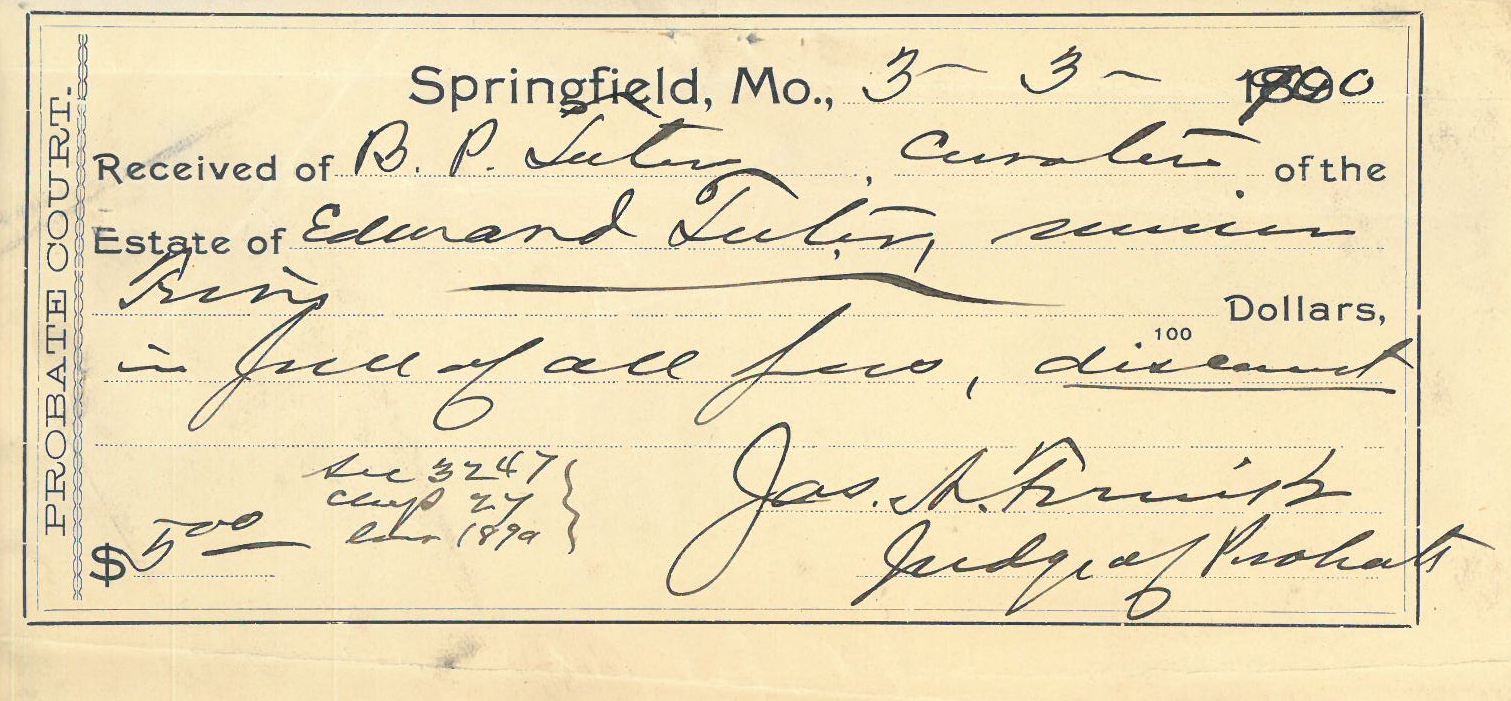 PROBATE COURT.
Springfield, Mo., 3 - 3 - 1900
Received of B. P. , Curator of the
Estate of Edward , minor
Dollars,
100
in full of all fees, discount
Sec 3247
Chap 27
1899
$ 5 00
Jas. A.
Judge of Probate